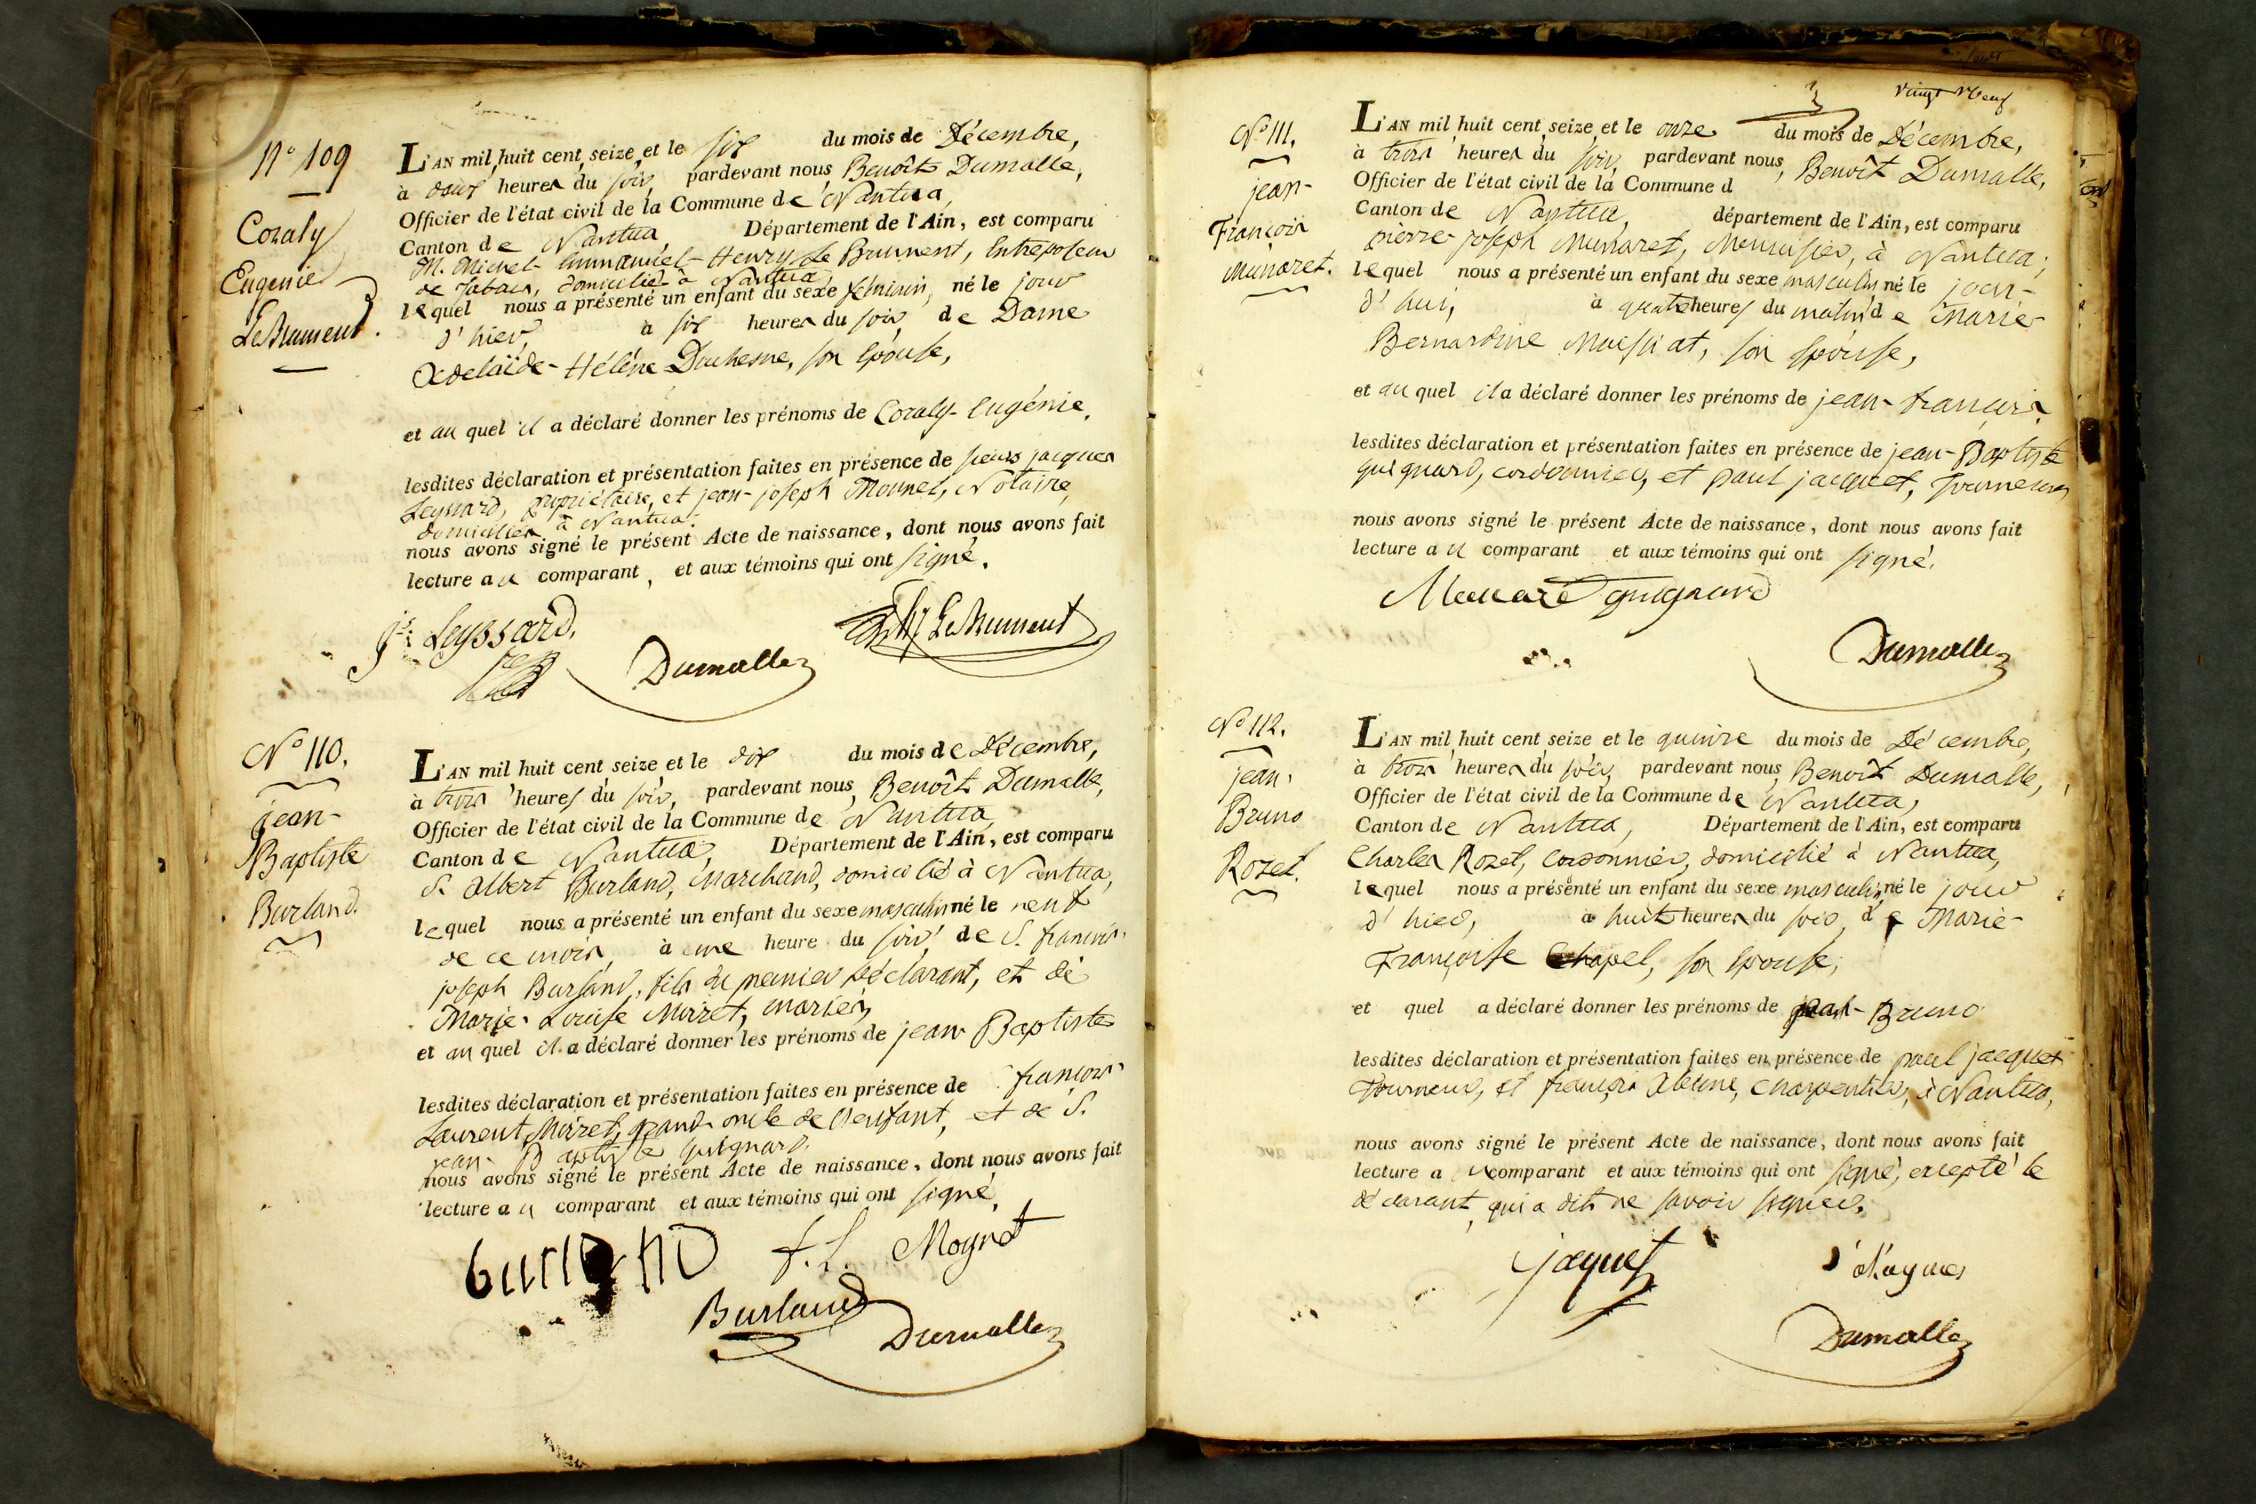 N° 109
Coraly
Eugenie
LeBrument.
L'AN mil huit cent seize et le six du mois de Décembre,
à deux heures du soir, pardevant nous Benoît Dumalle,
Officier de l'état civil de la Commune de Nantua,
Canton de Nantua Département de l'Ain, est comparu
M. Michel-Emmanuel-Henry Le Brument, Entreposeur
de Tabacs, domicilié à Nantua,
lequel nous a présenté un enfant du sexe féminin, né le jour
d'hier, à six heures du soir, de Dame
Adelaïde-Hélène Duchesne, son épouse,
et au quel il a déclaré donner les prénoms de Coraly-Eugénie.
lesdites déclaration et présentation faites en présence de sieurs jacques
Leyssard, propriétaire, et jean-joseph Monnet, Notaire,
domiciliés à Nantua.
nous avons signé le présent Acte de naissance, dont nous avons fait
lecture au comparant, et aux témoins qui ont signé.
Leyssard.
LeBrument
Dumalle
N° 110.
jean-
Baptiste
Burland.
L'AN mil huit cent seize et le dix du mois de Décembre,
à trois heures du soir, pardevant nous, Benoît Dumalle,
Officier de l'état civil de la Commune de Nantua,
Canton de Nantua, Département de l'Ain, est comparu
S. Albert Burland, Marchand, domicilié à Nantua,
lequel nous a présenté un enfant du sexe masculin né le neuf
de ce mois, à une heure du soir, de S. francois-
joseph Burland, fils du premier déclarant, et de
Marie-Louise Moiret, mariés,
et au quel il a déclaré donner les prénoms de jean-Baptiste
lesdites déclaration et présentation faites en présence de françois-
Laurent Moiret, grand oncle de l'enfant, et de S.
jean-Baptiste Guignard.
nous avons signé le présent Acte de naissance, dont nous avons fait
lecture au comparant et aux témoins qui ont signé,
burland
f. L. Moynet
Burland
Dumalle
vingt Neuf
N° 111.
jean-
François
Munaret.
L'AN mil huit cent seize et le onze du mois de Décembre,
à trois heures du soir, pardevant nous, Benoît Dumalle,
Officier de l'état civil de la Commune d
Canton de Nantua, département de l'Ain, est comparu
pierre-joseph Munaret, Menuisier, à Nantua,
lequel nous a présenté un enfant du sexe masculin né le jour-
d'hui, à quatre heures du matin de Marie-
Bernardine son épouse,
et au quel il a déclaré donner les prénoms de jean-françois.
lesdites déclaration et présentation faites en présence de jean-Baptiste
guignard, cordonnier, et paul jacquet, Tourneur,
nous avons signé le présent Acte de naissance, dont nous avons fait
lecture au comparant et aux témoins qui ont signé.
guignard
Dumalle
N° 112.
jean-
Bruno
Rozet.
L'AN mil huit cent seize et le quinze du mois de Décembre,
à trois heures du soir, pardevant nous, Benoît Dumalle,
Officier de l'état civil de la Commune de Nantua,
Canton de Nantua, Département de l'Ain, est comparu
Charles Rozet, Cordonnier, domicilié à Nantua,
lequel nous a présenté un enfant du sexe masculin, né le jour
d'hier, à huit heures du soir, de Marie-
Françoise Chapel, son épouse,
et quel a déclaré donner les prénoms de jean-Bruno
lesdites déclaration et présentation faites en présence de paul jacquet
Tourneur, et françois Charpentier, à Nantua,
nous avons signé le présent Acte de naissance, dont nous avons fait
lecture au comparant et aux témoins qui ont signé, excepté le
déclarant, qui a dit ne savoir signer.
jaquet
Dumalle